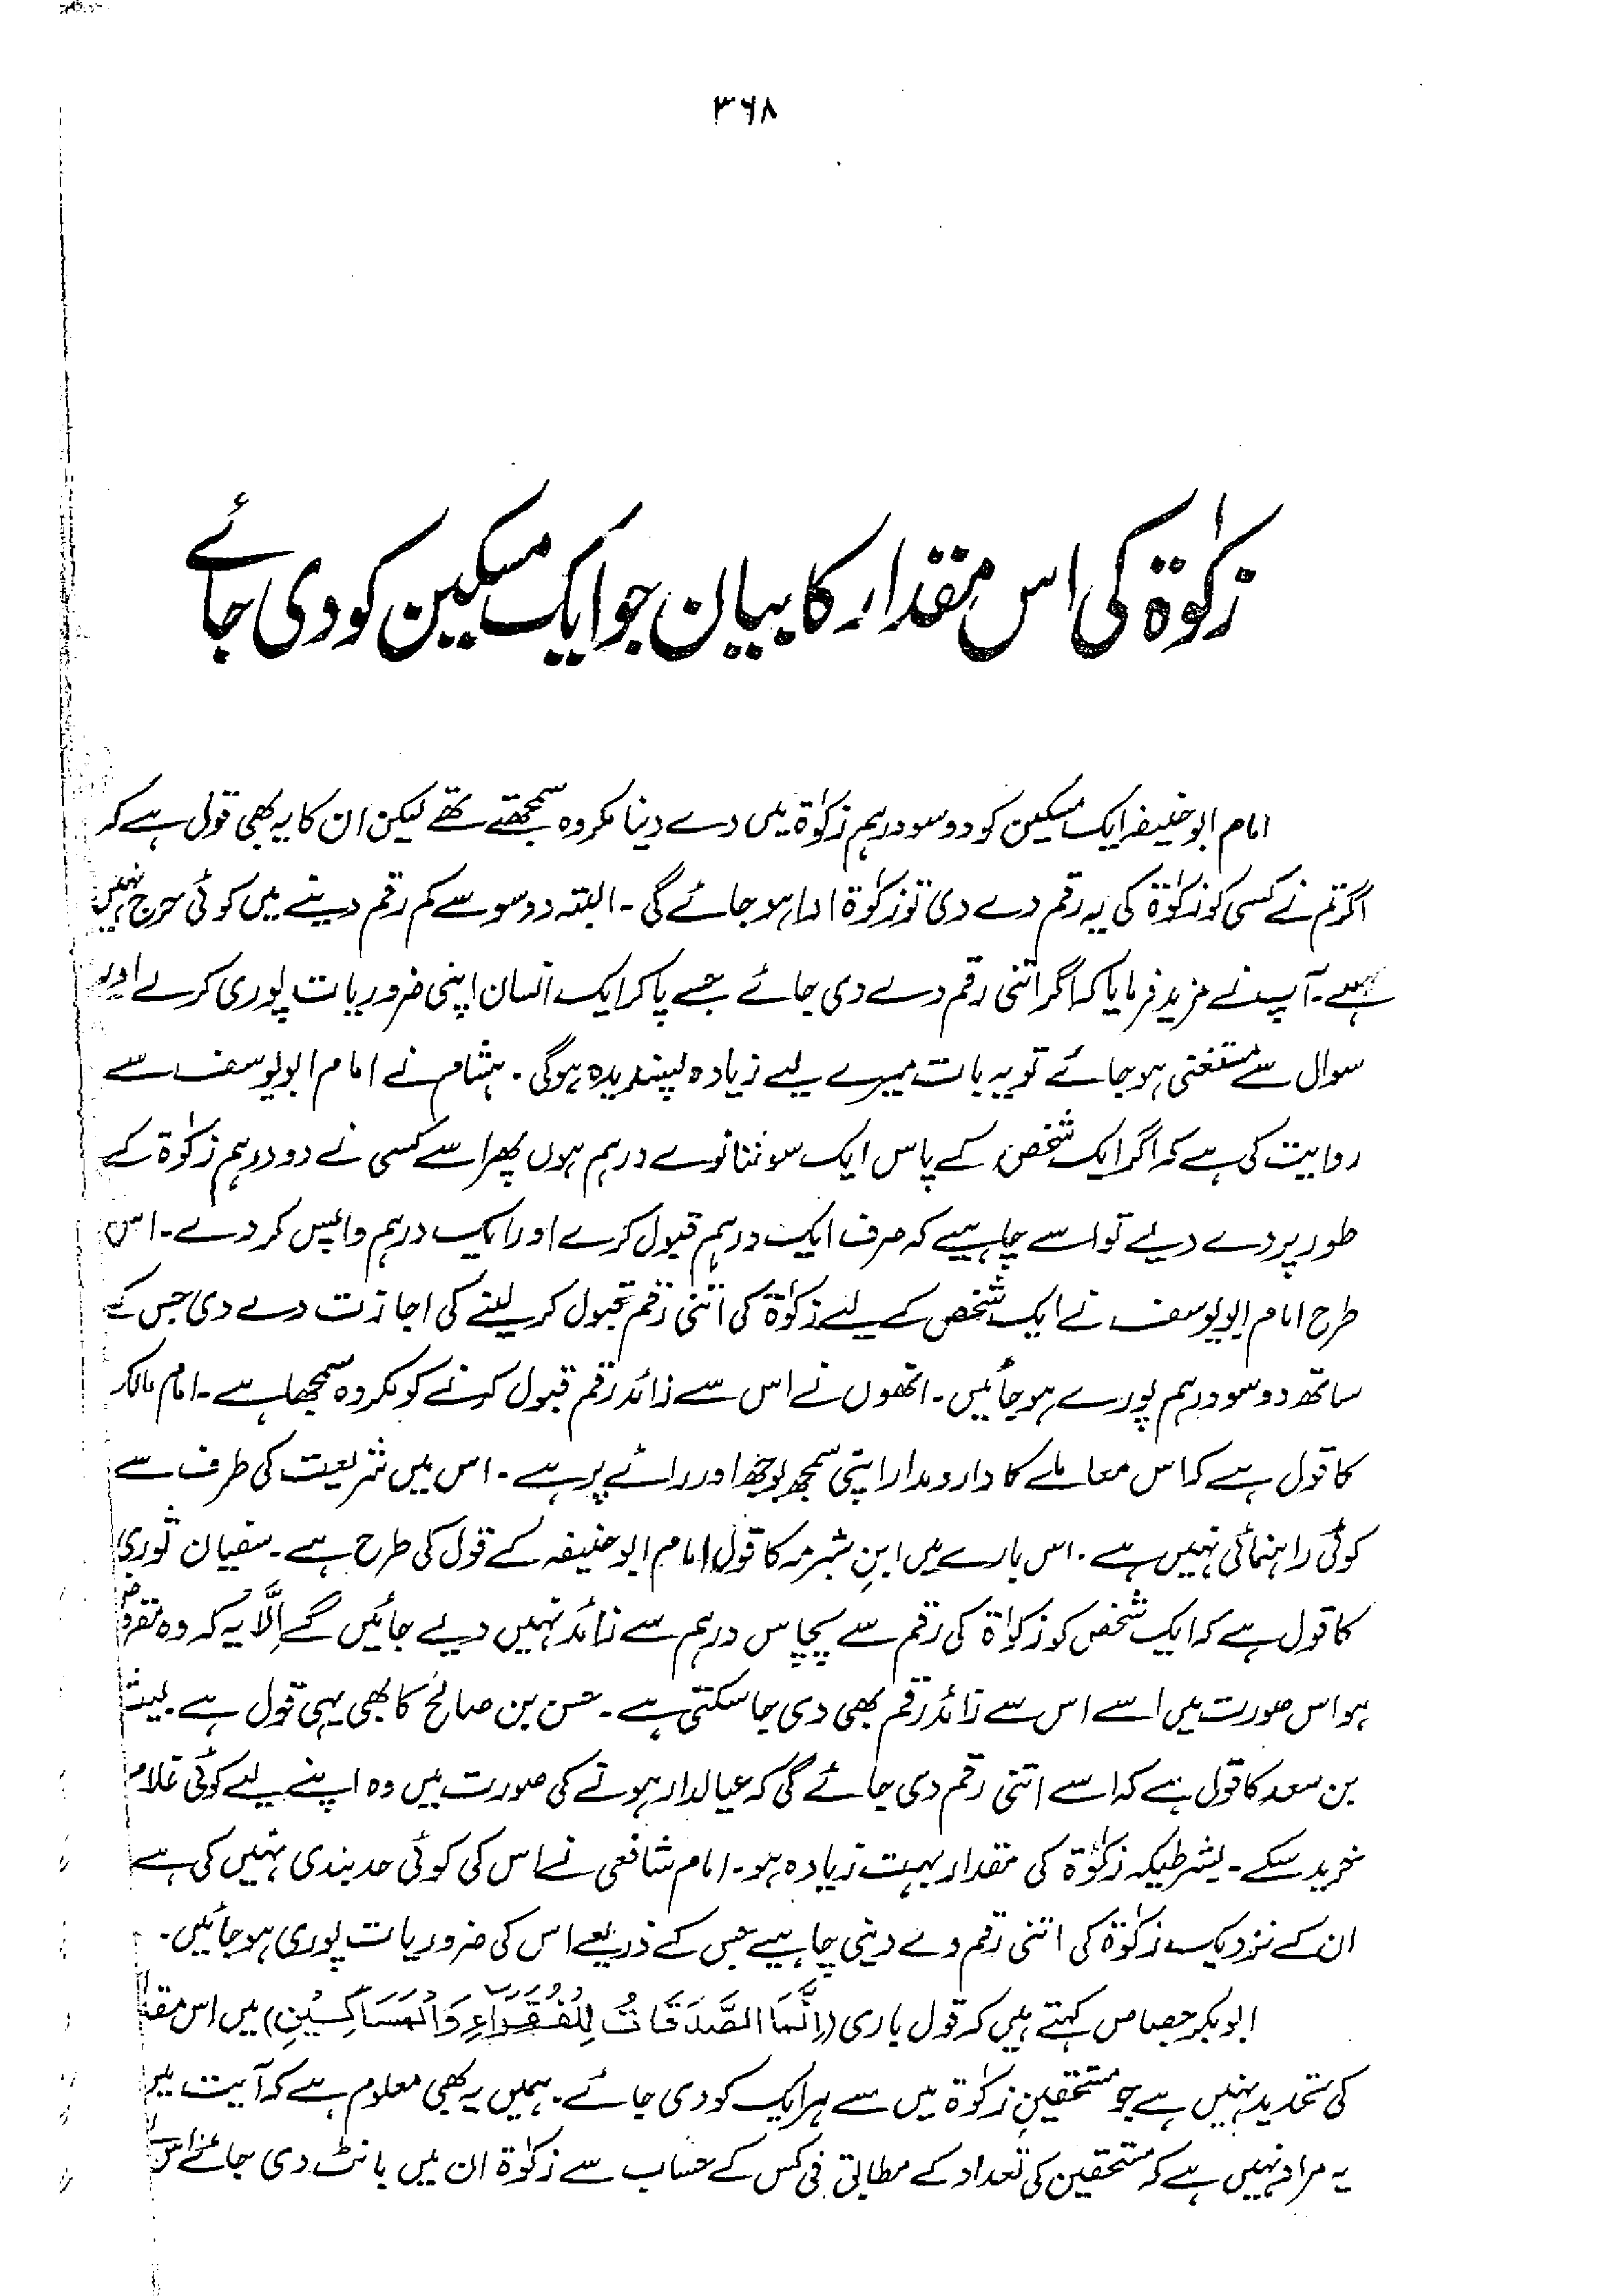 ۳۶۸
زکوٰۃ کی اس مقدار کا بیان جو ایک مسکین کو دی جائے
امام ابو حنیفہ ایک مسکین کو دو سو درہم زکوٰۃ میں دے دینا مکروہ سمجھتے تھے لیکن ان کا یہ بھی قول ہے کہ
اگر تم نے کسی کو زکوٰۃ کی یہ رقم دے دی تو زکوٰۃ ادا ہو جائے گی۔ البتہ دو سو سے کم رقم دینے میں کوئی حرج نہیں
ہے۔ آپ نے مزید فرمایا کہ اگر اتنی رقم دے دی جائے جسے پا کر ایک انسان اپنی ضروریات پوری کر لے اور
سوال سے مستغنی ہو جائے تو یہ بات میرے لیے زیادہ پسندیدہ ہوگی۔ ہشام نے امام ابو یوسف سے
روایت کی ہے کہ اگر ایک شخص کے پاس ایک سو ننانوے درہم ہوں پھر اسے کسی نے دو درہم زکوٰۃ کے
طور پر دے دیئے تو اسے چاہیے کہ صرف ایک درہم قبول کرے اور ایک درہم واپس کر دے۔ اس
طرح امام ابو یوسف نے ایک شخص کے لیے زکوٰۃ کی اتنی رقم قبول کر لینے کی اجازت دے دی جس کے
ساتھ دو سو درہم پورے ہو جائیں۔ انھوں نے اس سے زائد رقم قبول کرنے کو مکروہ سمجھا ہے۔ امام مالک
کا قول ہے کہ اس معاملے کا دارو مدار اپنی سمجھ بوجھ اور رائے پر ہے۔ اس میں شریعت کی طرف سے
کوئی راہنمائی نہیں ہے۔ اس بارے میں ابنِ شبرمہ کا قول امام ابو حنیفہ کے قول کی طرح ہے۔ سفیان ثوری
کا قول ہے کہ ایک شخص کو زکوٰۃ کی رقم سے پچاس درہم سے زائد نہیں دیے جائیں گے اِلَّا یہ کہ وہ مقروض
ہو اس صورت میں اسے اس سے زائد رقم بھی دی جا سکتی ہے۔ حسن بن صالح کا بھی یہی قول ہے لیث
بن سعد کا قول ہے کہ اسے اتنی رقم دی جائے گی کہ عیالدار ہونے کی صورت میں وہ اپنے لیے کوئی غلام
خرید سکے۔ بشرطیکہ زکوٰۃ کی مقدار بہت زیادہ ہو۔ امام شافعی نے اس کی کوئی حد بندی نہیں کی ہے
ان کے نزدیک زکوٰۃ کی اتنی رقم دے دینی چاہیے جس کے ذریعے اس کی ضروریات پوری ہو جائیں۔
ابوبکر جصاص کہتے ہیں کہ قول باری (اِنَّمَا الصَّدَقَاتُ لِلْفُقَرَاءِ وَالْمَسَاكِيْنِ) میں اس
کی تحدید نہیں ہے جو مستحقینِ زکوٰۃ میں سے ہر ایک کو دی جائے۔ ہمیں یہ بھی معلوم ہے کہ آیت میں
یہ مراد نہیں ہے کہ مستحقین کی تعداد کے مطابق فی کس کے حساب سے زکوٰۃ ان میں بانٹ دی جائے